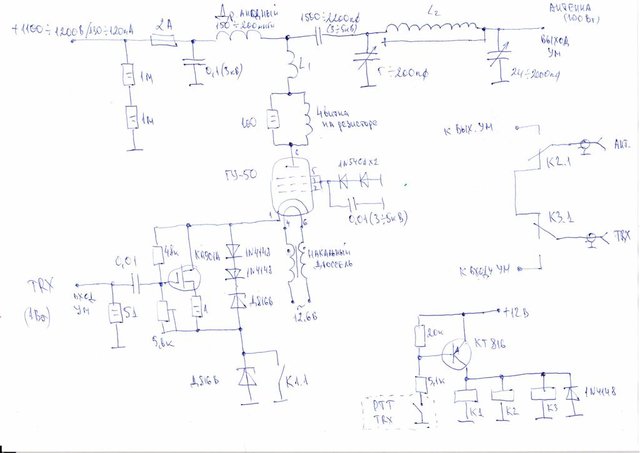 +1100÷1200В/130÷120мА
2А
Др анодный
150÷200мкГн
1500÷2200пФ
(3÷5кВ)
L2
АНТЕННА
(100Вт)
ВЫХОД
УМ
0,1(3кВ)
L1
5÷200пФ
1М
1М
100
4 витка
на резисторе
К ВЫХ. УМ
АНТ.
К2.1
ГУ-50
1N5408×2
0,01(3÷5кВ)
К3.1
TRX
К ВХОДУ УМ
1
4
6
НАКАЛЬНЫЙ
ДРОССЕЛЬ
12.6В
0,01
1N4148
1N4148
Д816Б
TRX
ВХОД
УМ
(1Вт)
51
1
Д816В
К1.1
+12В
КТ816
5,1к
PTT
TRX
К1
К2
К3
1N4148